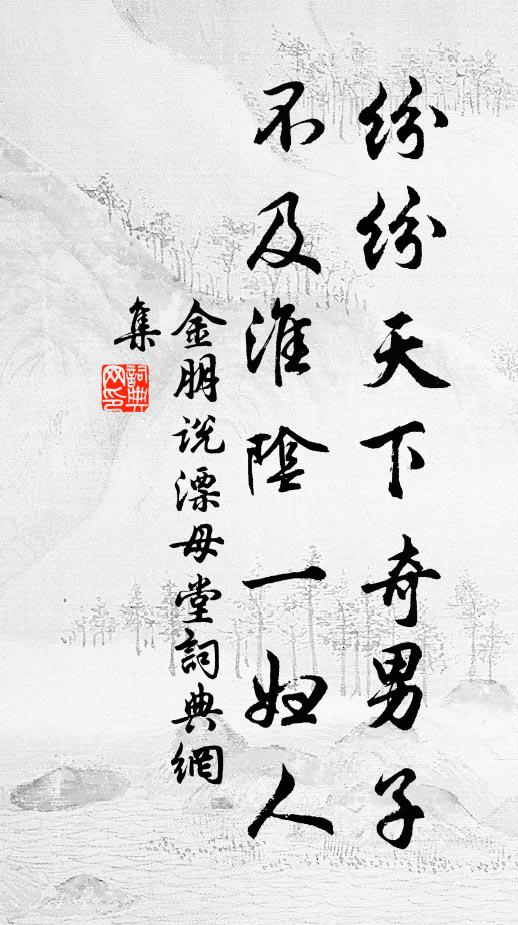 纷纷天下奇男子
不及淮陰一妇人
金朋说漂母堂詞典網
集
詞典
网印